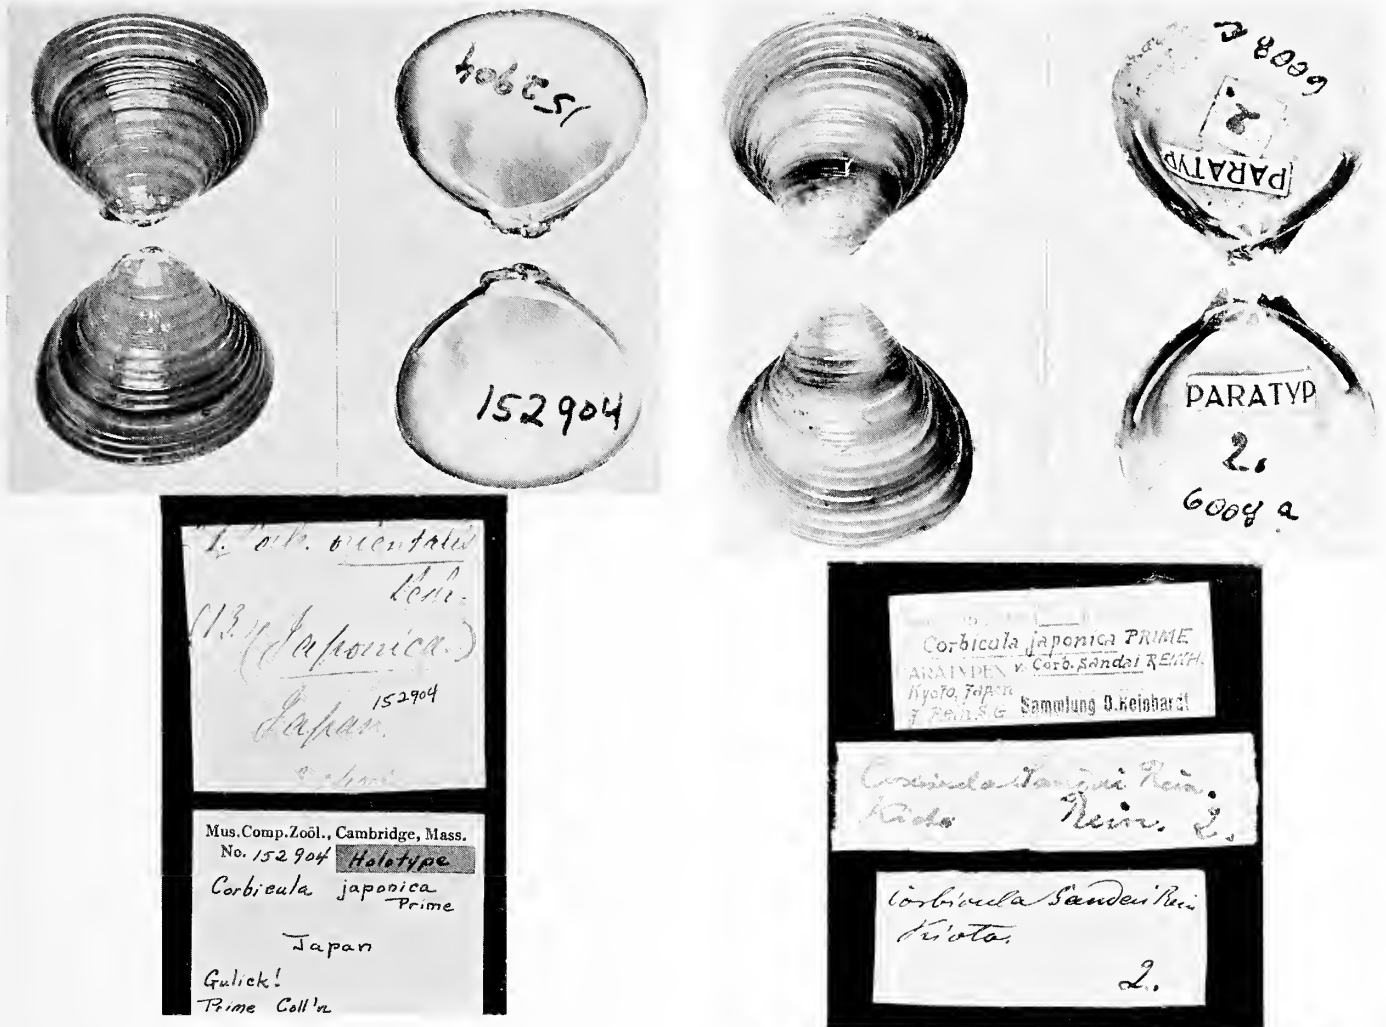 152904
152904
6008 a
2
PARATYP
PARATYP
2.
6008 a
orientalis
(Japonica.)
152904
Japan.
Mus.Comp.Zoöl., Cambridge, Mass.
No. 152904 Holotype
Corbicula japonica
Prime
Japan
Gulick!
Prime Coll'n
Corbicula japonica PRIME
ARATYPEN v. Corb. Sandai REINH.
Kyoto, Japan
Rein S.G. Sammlung O.Reinhardt
Corbicula Sandai Rein.
Rein. 2.
Corbicula Sandai Rein
Kioto.
2.